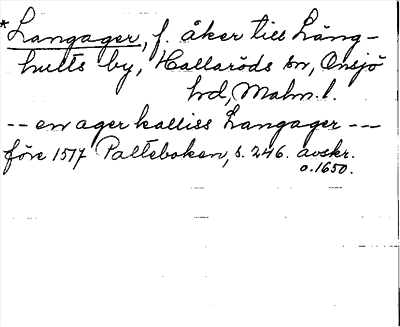 *Langager, f. åker till Lång-
hults by, Hallaröds sn, Onsjö
hd, Malm. l.
-- en ager kalliss Langager ---
före 1517 Palteboken, s. 246. avskr.
o. 1650.